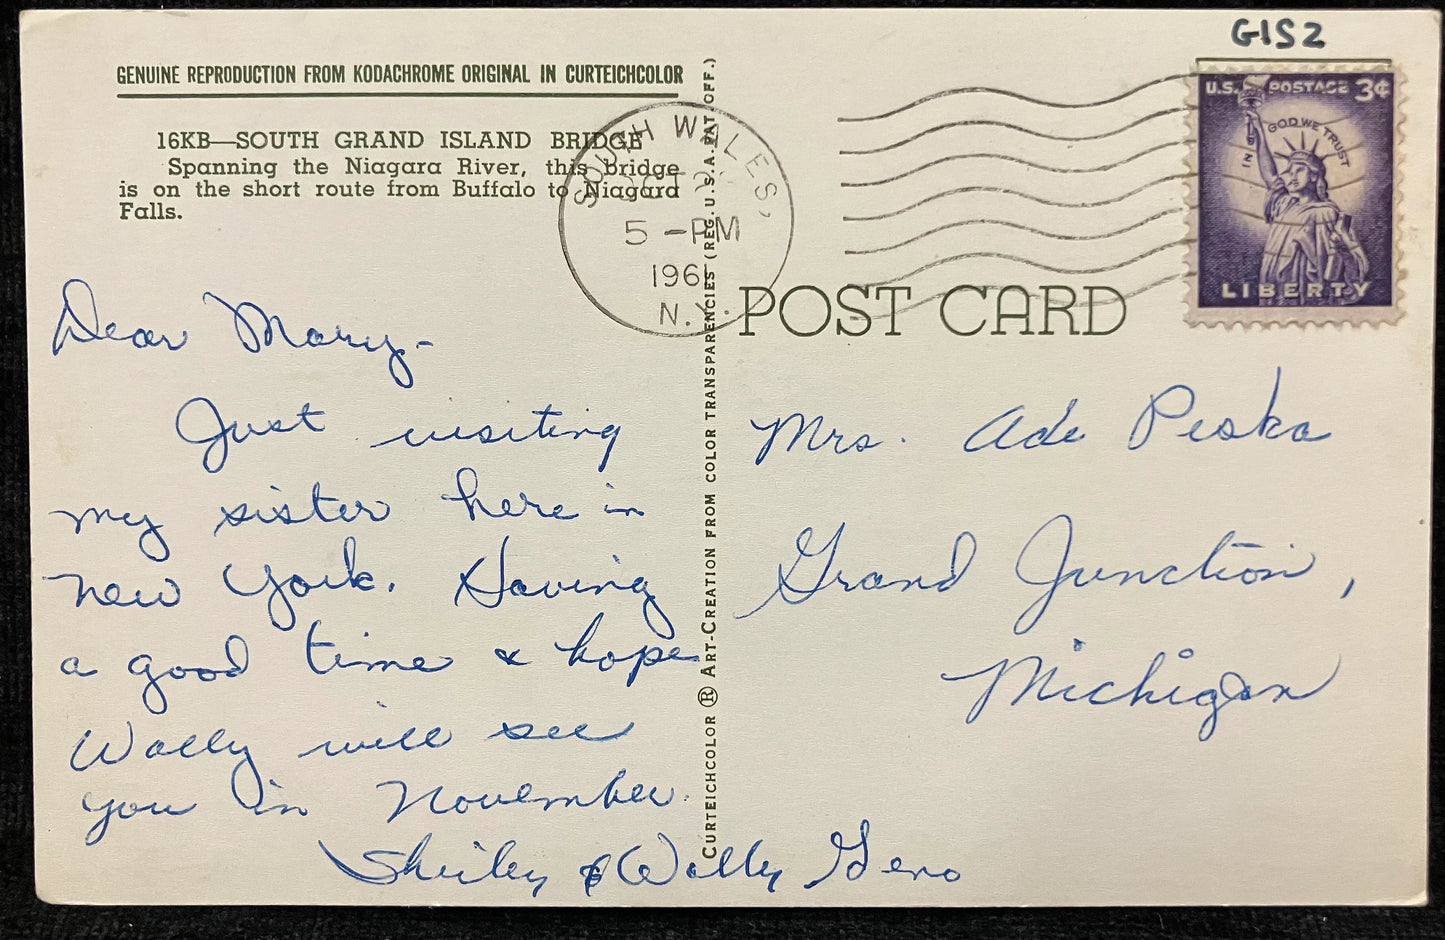 G1S2
GENUINE REPRODUCTION FROM KODACHROME ORIGINAL IN CURTEICHCOLOR
16KB—SOUTH GRAND ISLAND BRIDGE
Spanning the Niagara River, this bridge
is on the short route from Buffalo to Niagara
Falls.
SOUTH WALES,
5 -PM
196
N.Y.
U.S. POSTAGE 3¢
IN GOD WE TRUST
LIBERTY
POST CARD
CURTEICHCOLOR ® ART-CREATION FROM COLOR TRANSPARENCIES (REG. U.S.A. PAT. OFF.)
Dear Mary-
Just visiting
my sister here in
New York. Having
a good time & hope
Wally will see
you in November.
Shirley & Wally Gero
Mrs. Ade Peska
Grand Junction,
Michigan